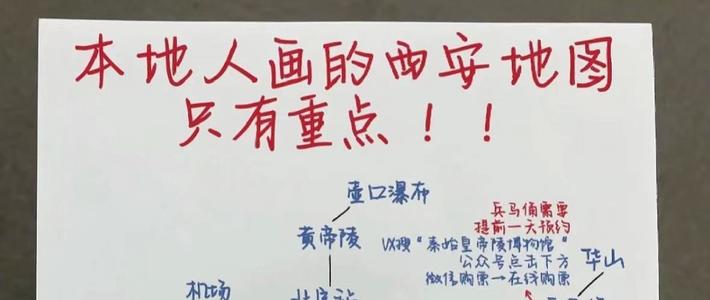 本地人画的西安地图
只有重点！！
壶口瀑布
黄帝陵
兵马俑需要
提前一天预约
VX搜“秦始皇帝陵博物馆”
公众号点击下方
微信购票→在线购票
华山
机场